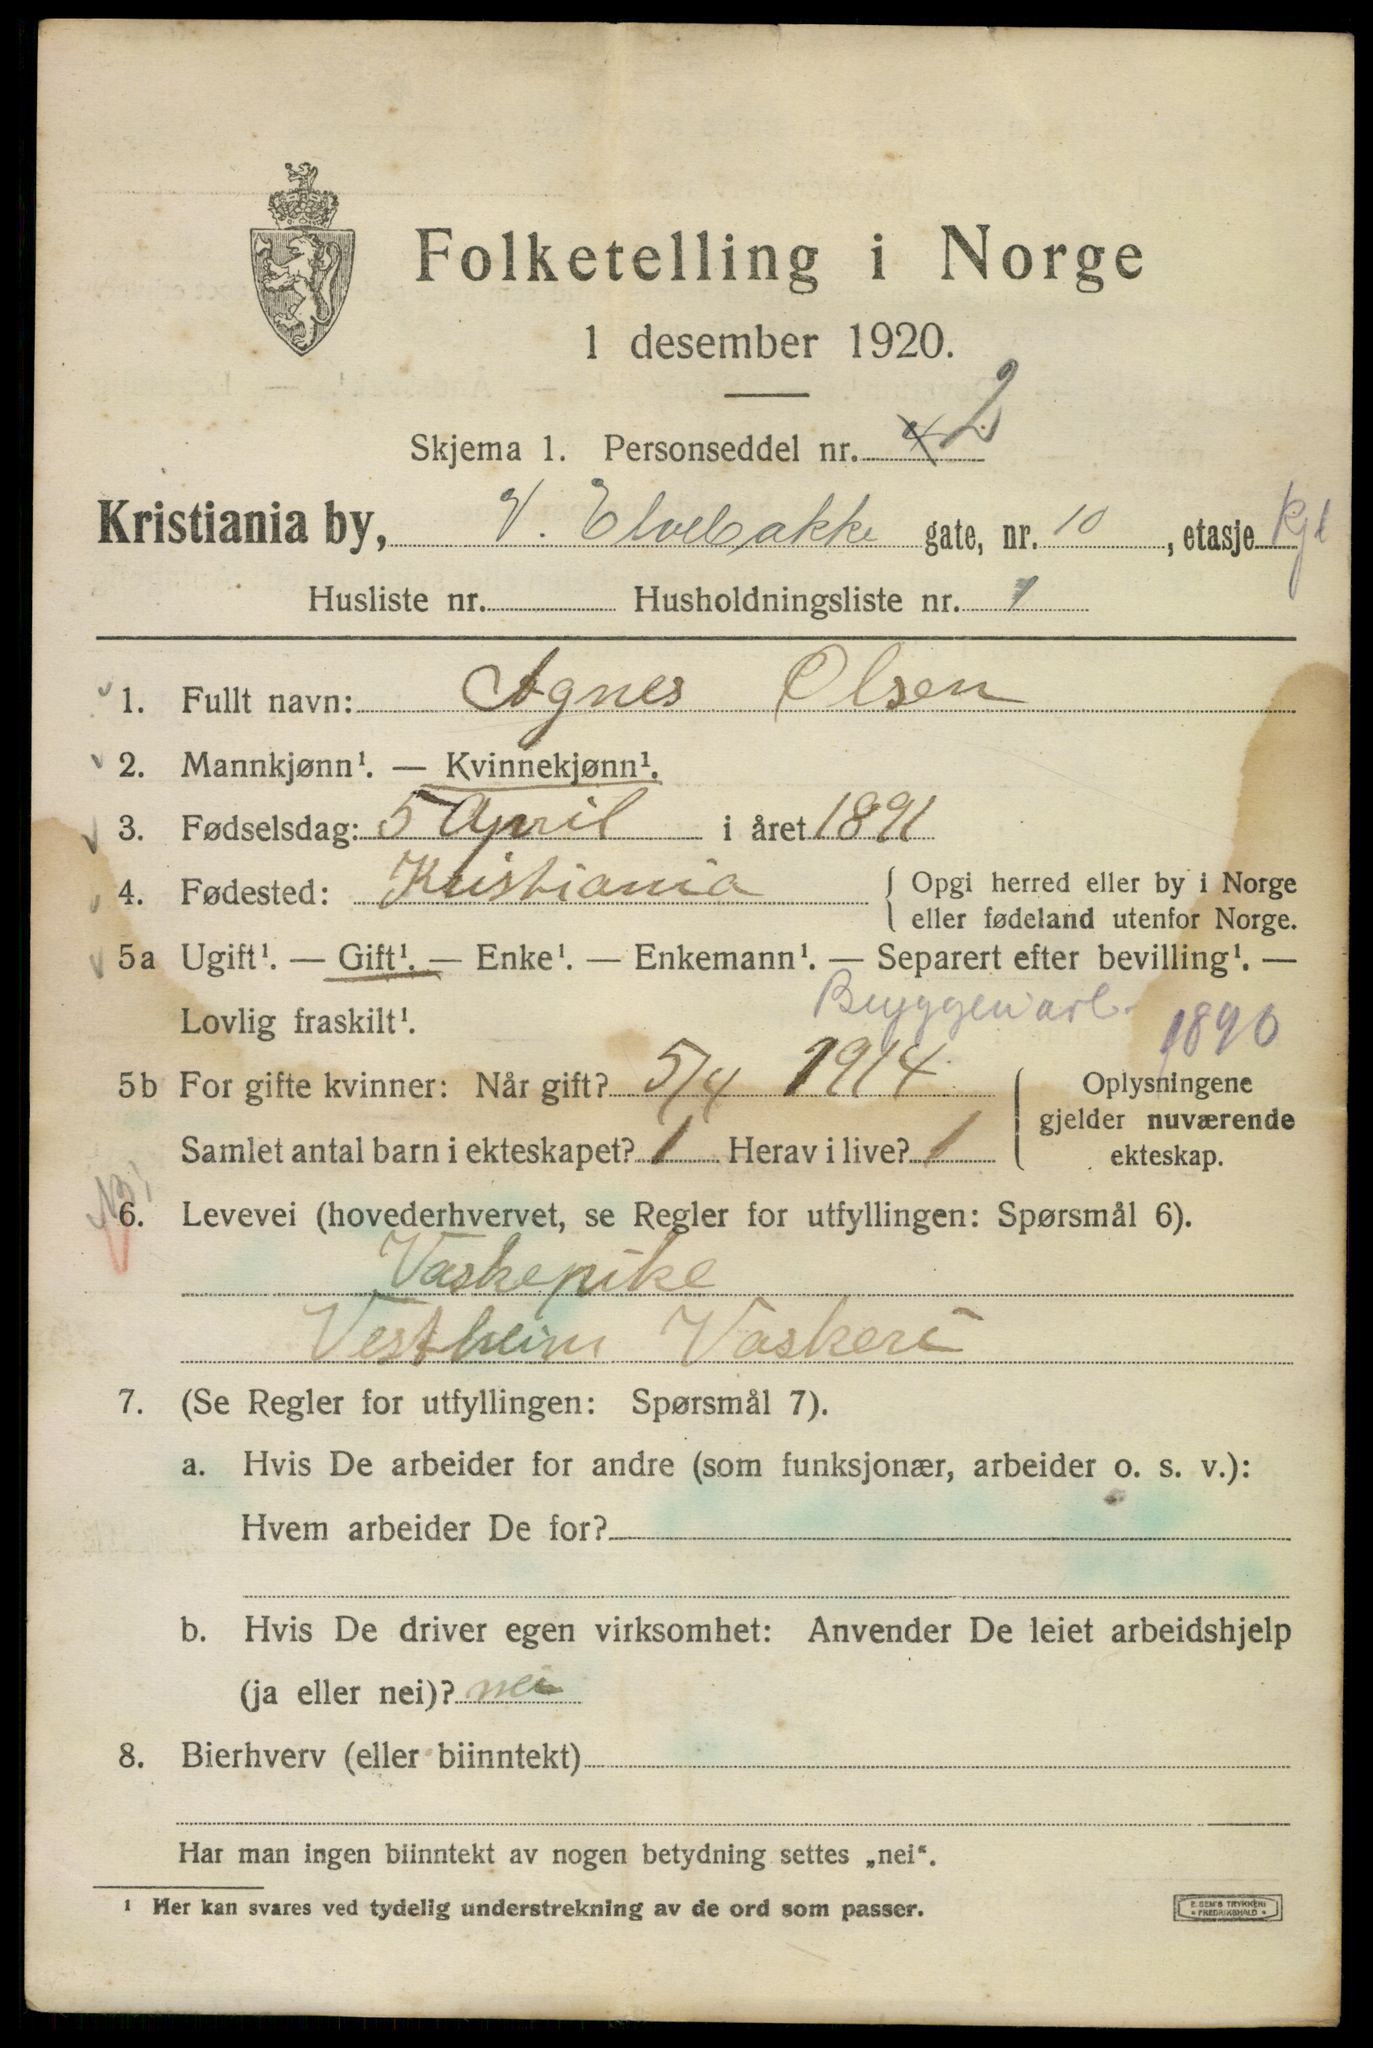 Folketelling i Norge
1 desember 1920.
Skjema 1. Personseddel nr. 2
Kristiania by, V. Elvebakke gate, nr. 10, etasje Kjl
Husliste nr. Husholdningsliste nr. 1
1. Fullt navn: Agnes Olsen
2. Mannkjønn¹. — Kvinnekjønn¹.
3. Fødselsdag: 5 April i året 1891
4. Fødested: Kristiania { Opgi herred eller by i Norge
eller fødeland utenfor Norge.
5a Ugift¹. — Gift¹. — Enke¹. — Enkemann¹. — Separert efter bevilling¹. —
Bryggeriarb. 1890
Lovlig fraskilt¹.
5b For gifte kvinner: Når gift? 5/4 1914 { Oplysningene
gjelder nuværende
ekteskap.
Samlet antal barn i ekteskapet? 1 Herav i live? 1
6. Levevei (hovederhvervet, se Regler for utfyllingen: Spørsmål 6).
Vaskepike
Vestheim Vaskeri
7. (Se Regler for utfyllingen: Spørsmål 7).
a. Hvis De arbeider for andre (som funksjonær, arbeider o. s. v.):
Hvem arbeider De for?
b. Hvis De driver egen virksomhet: Anvender De leiet arbeidshjelp
(ja eller nei)? nei
8. Bierhverv (eller biinntekt)
Har man ingen biinntekt av nogen betydning settes „nei“.
¹ Her kan svares ved tydelig understrekning av de ord som passer.
E. SEM'S TRYKKERI
* FREDRIKSHALD *